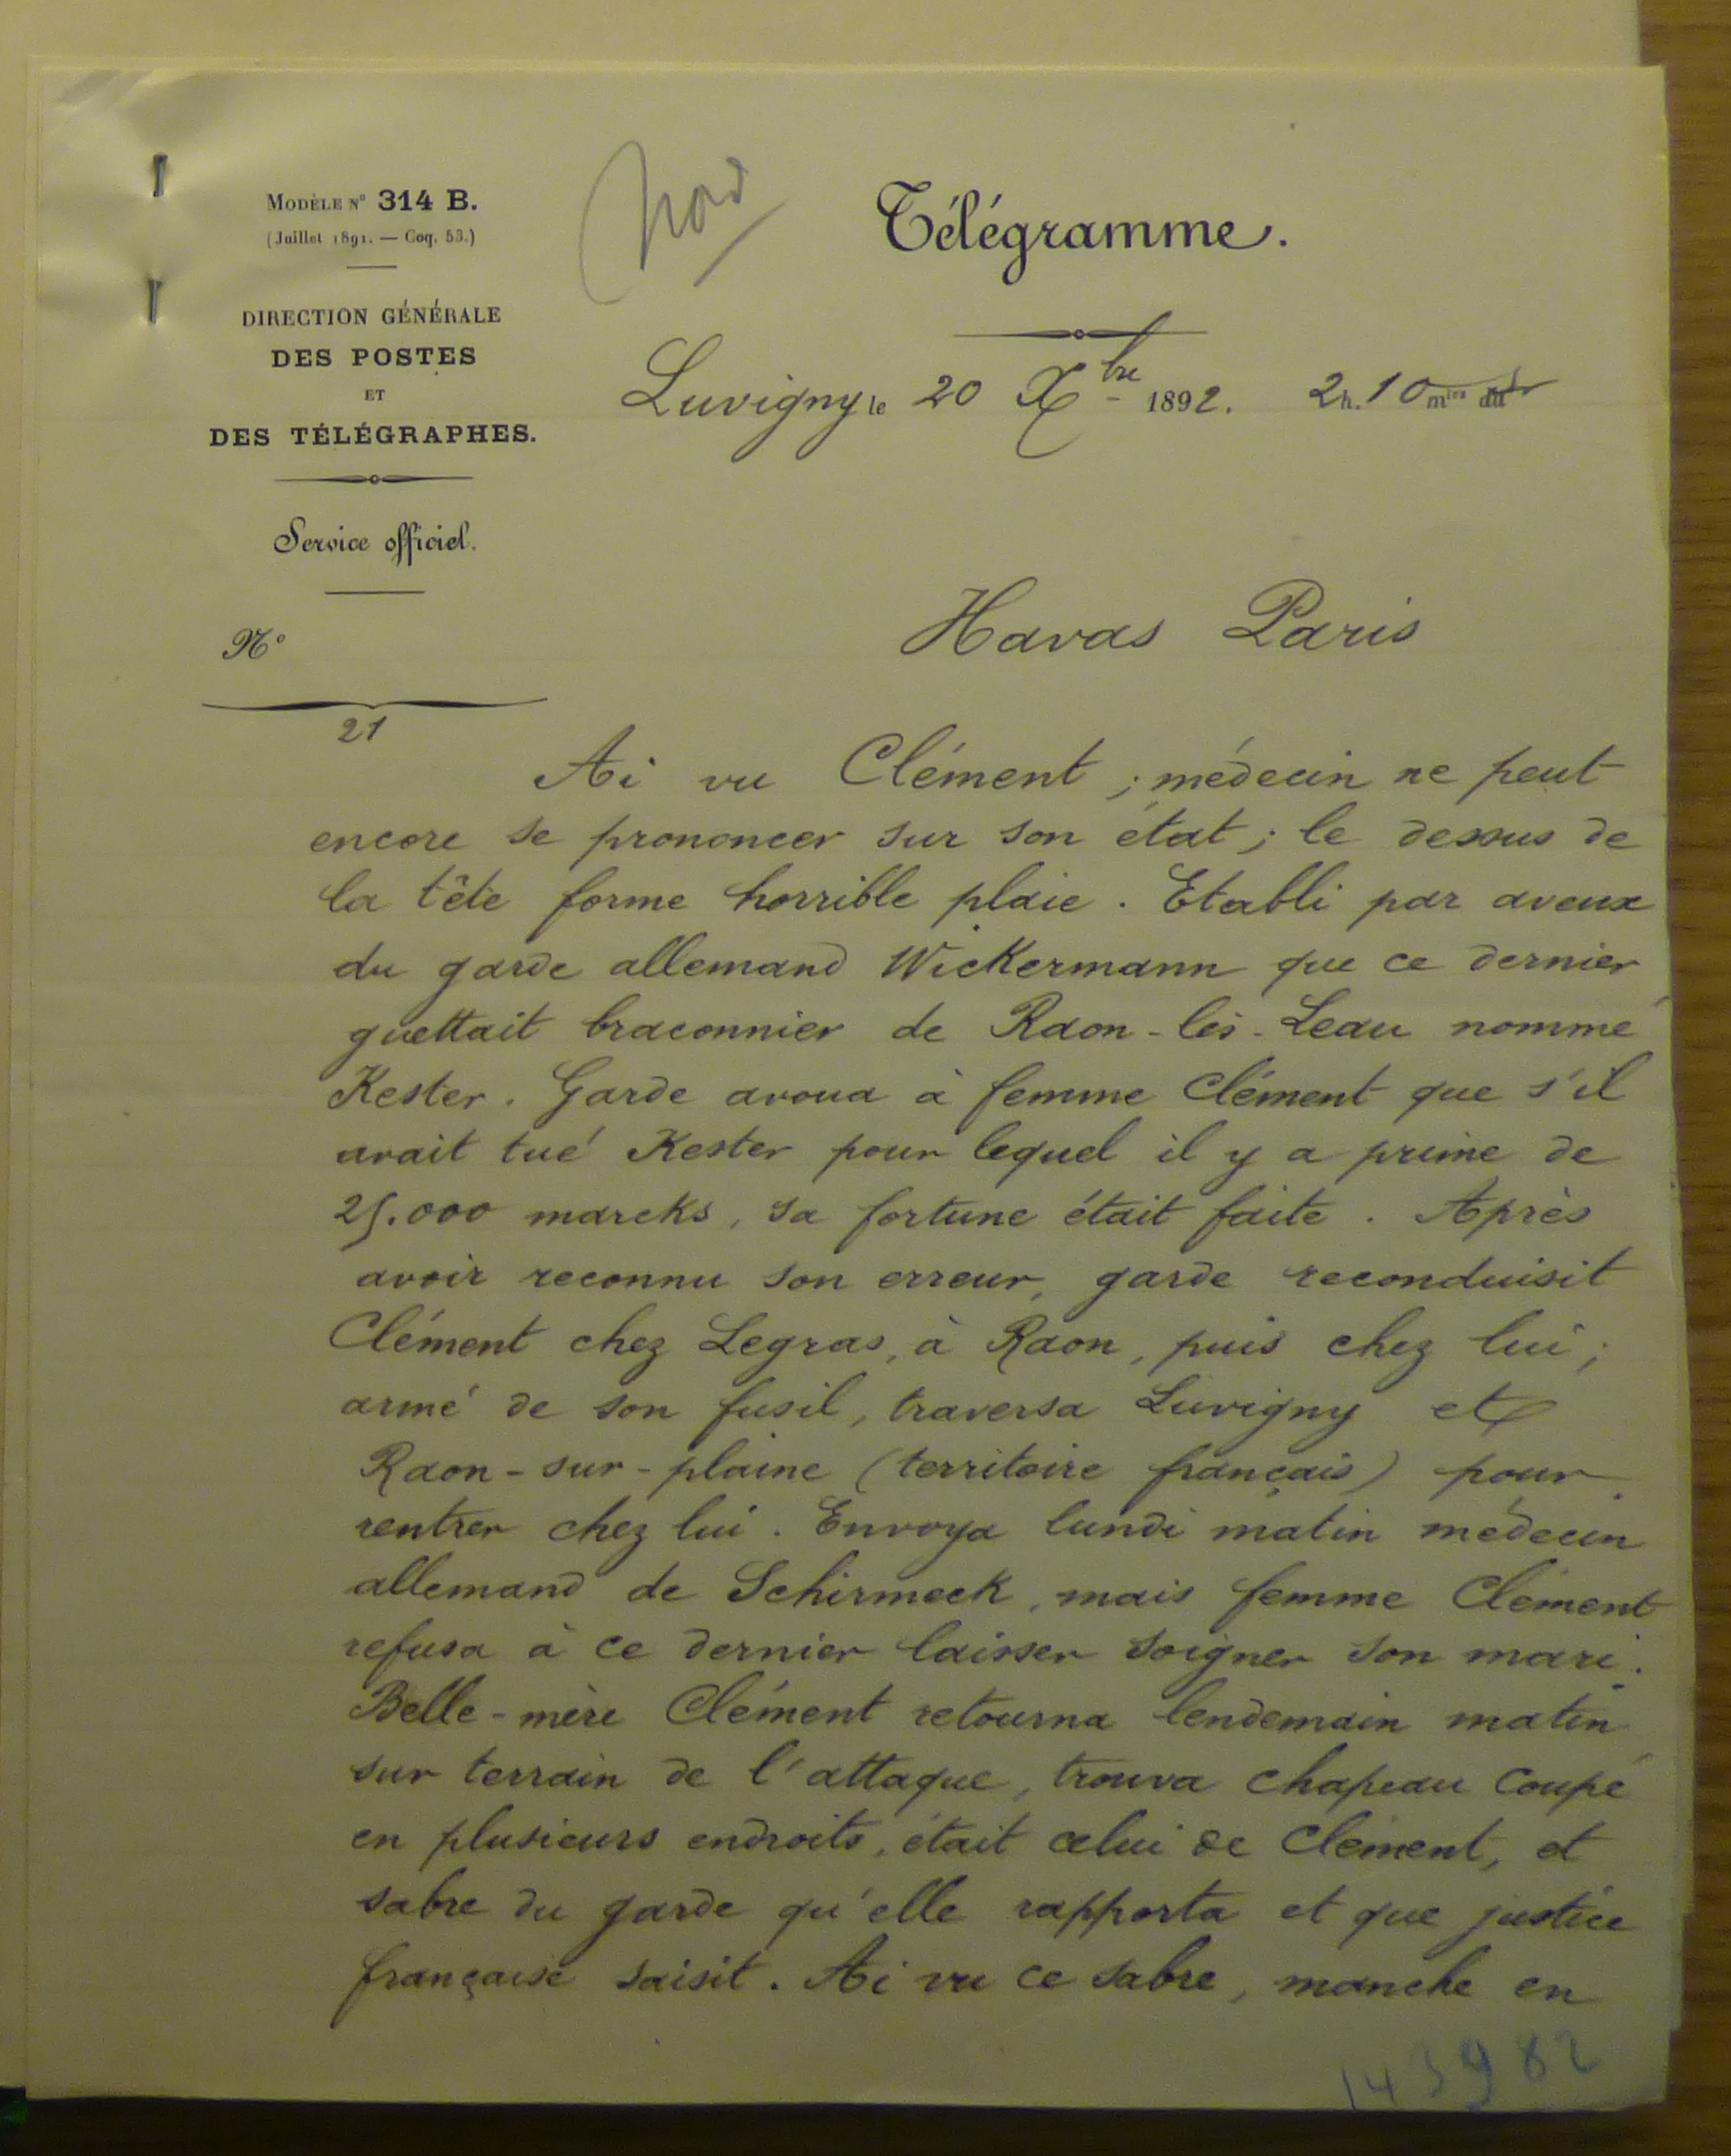 Modèle N° 314 B.
(Juillet 1891. — Coq. 53.)
DIRECTION GÉNÉRALE
DES POSTES
ET
DES TÉLÉGRAPHES.
Service officiel.
N°
21
Télégramme.
Luvigny le 20 Xbre 1892. 2h. 10 mtes du
Havas Paris
Ai vu Clément ; médecin ne peut
encore se prononcer sur son état ; le dessus de
la tête forme horrible plaie. Etabli par aveux
du garde allemand Wickermann que ce dernier
guettait braconnier de Raon-lès-Leau nommé
Kester. Garde avoua à femme Clément que s'il
avait tué Kester pour lequel il y a prime de
25.000 marcks, sa fortune était faite. Après
avoir reconnu son erreur, garde reconduisit
Clément chez Legras, à Raon, puis chez lui ;
armé de son fusil, traversa Luvigny et
Raon-sur-plaine (territoire français) pour
rentrer chez lui. Envoya lundi matin médecin
allemand de Schirmeck, mais femme Clément
refusa à ce dernier laisser soigner son mari.
Belle-mère Clément retourna lendemain matin
sur terrain de l'attaque, trouva chapeau coupé
en plusieurs endroits, était celui de Clément, et
sabre du garde qu'elle rapporta et que justice
française saisit. Ai vu ce sabre, manche en
143982